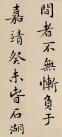 間者不無慚負于
嘉靖癸未眷石湖